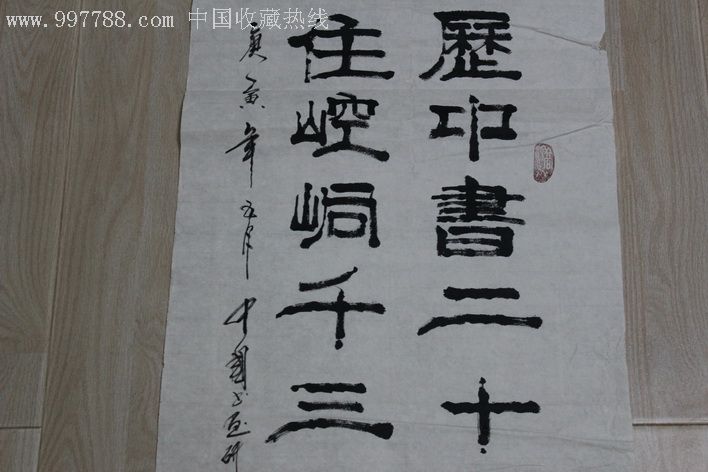 www.997788.com 中国收藏热线
歷中書二十
住崆峒千三
庚寅年五月 中國书画研